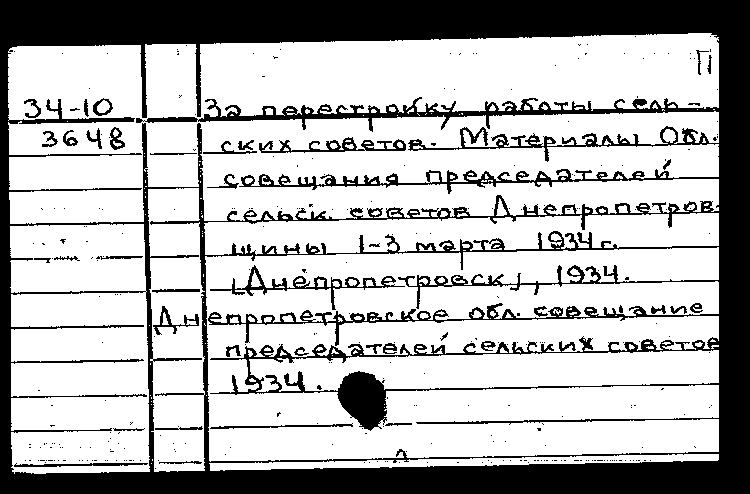 П
34-10 За перестройку работы сель-
3648 ских советов. Материалы Обл.
совещания председателей
сельск. советов Днепропетров-
щины 1-3 марта 1934 г.
[Днепропетровск], 1934.
Днепропетровское обл. совещание
председателей сельских советов
1934.